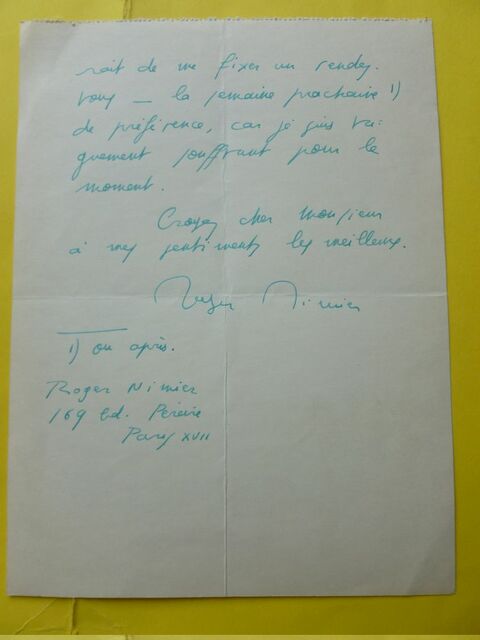 rait de me fixer un rendez-
vous — la semaine prochaine 1)
de préférence, car je suis va-
guement souffrant pour le
moment.
Croyez cher Monsieur
à mes sentiments les meilleurs.
Roger Nimier
1) ou après.
Roger Nimier
169 bd. Péreire
Paris XVII